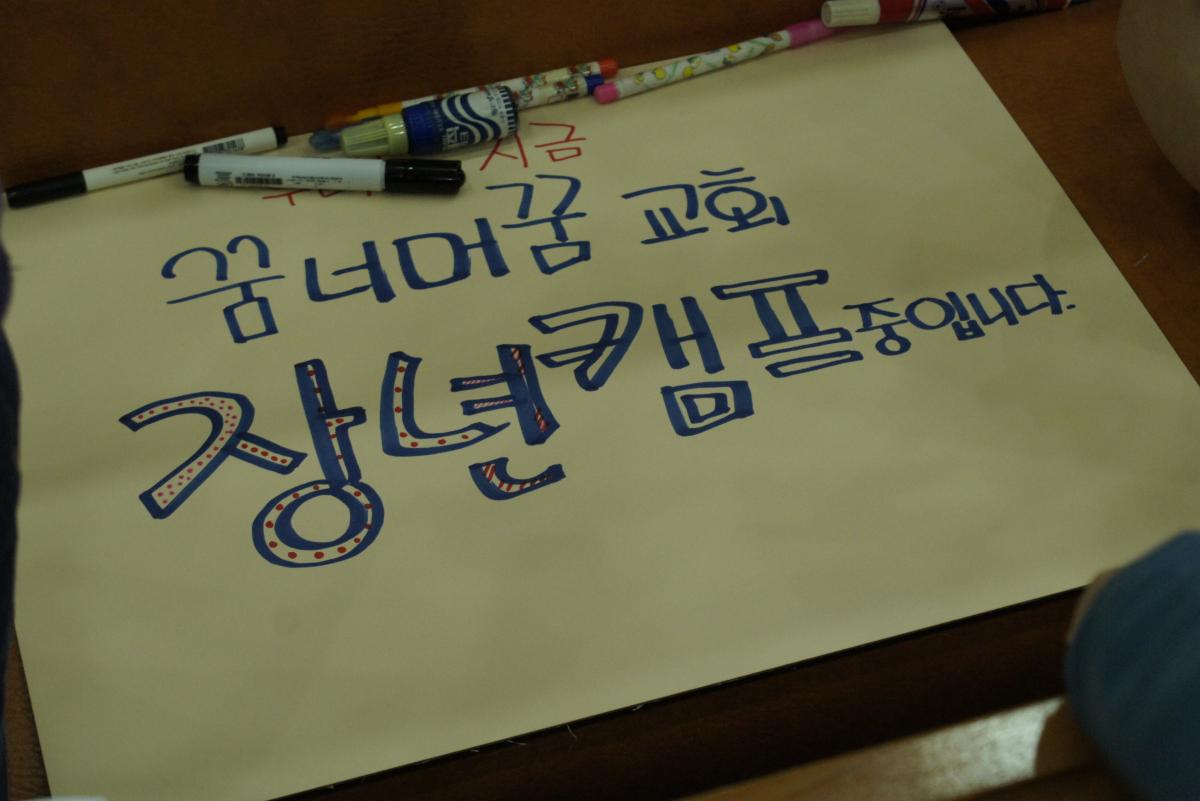 지금
꿈너머꿈 교회
장년캠프중입니다.